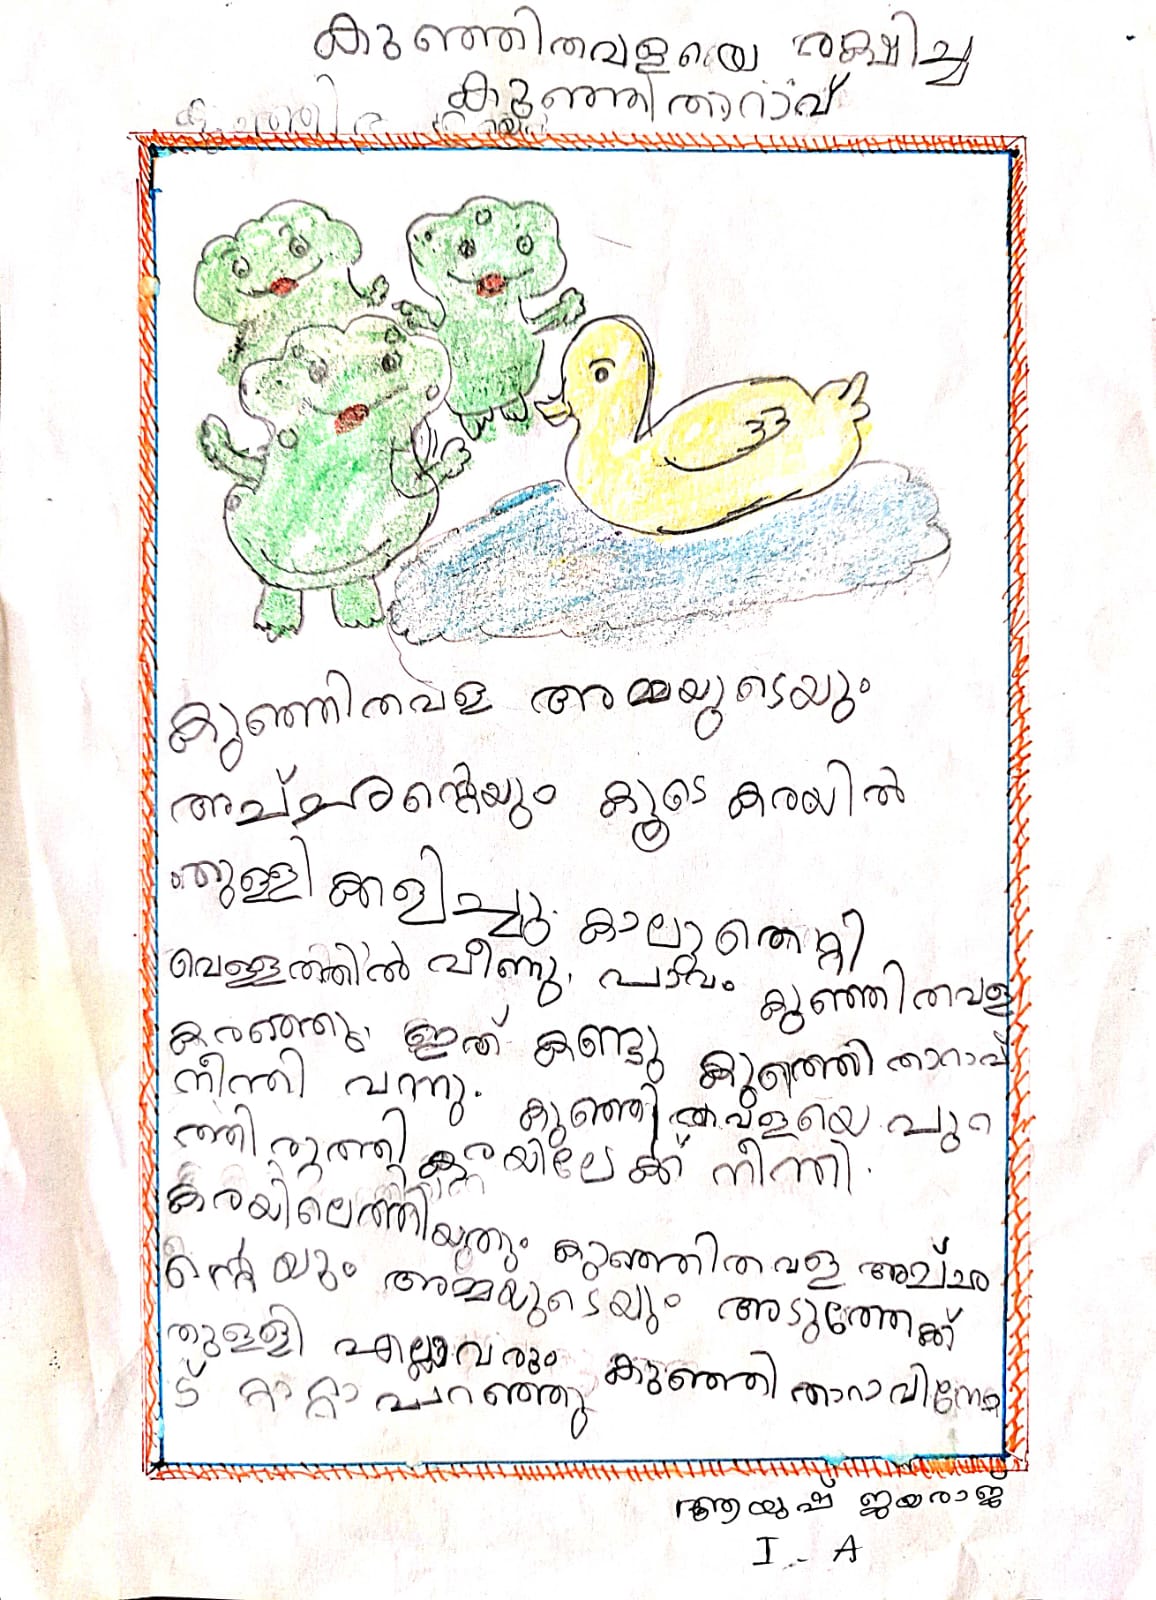 കുഞ്ഞിതവളയെ രക്ഷിച്ച
കുഞ്ഞിതാറാവ്
കുഞ്ഞിതവള അമ്മയുടെയും
അച്ഛന്റെയും കൂടെ കരയിൽ
തുള്ളി കളിച്ചു. കാലുതെറ്റി
വെള്ളത്തിൽ വീണു. പാവം കുഞ്ഞിതവള
കരഞ്ഞു. ഇത് കണ്ടു കുഞ്ഞി താറാവ്
നീന്തി വന്നു. കുഞ്ഞി തവളയെ പുറ
ത്തിരുത്തി കരയിലേക്ക് നീന്തി.
കരയിലെത്തിയതും കുഞ്ഞിതവള അച്ഛ
ന്റെയും അമ്മയുടെയും അടുത്തേക്ക്
തുള്ളി എല്ലാവരും കുഞ്ഞി താറാവിനോ
ട് റ്റാറ്റാ പറഞ്ഞു
ആയുഷ് ജയരാജ്
I - A